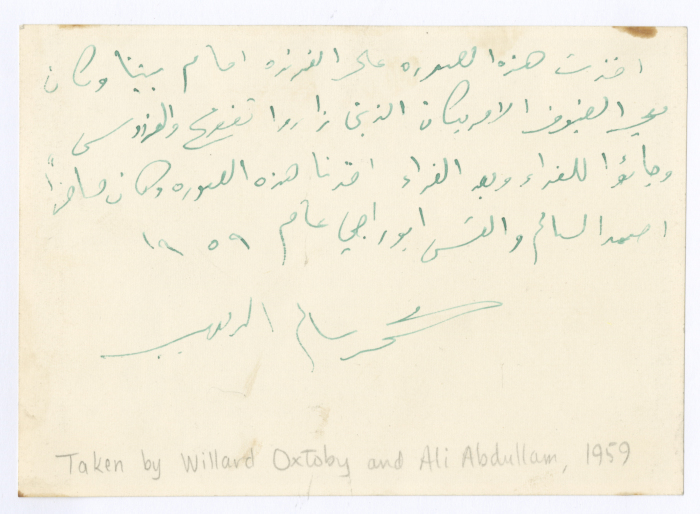 اخذت هذه الصوره على الفرنده امام بيتنا وكان
معي الضيوف الامريكان الذين زاروا تفوح والفردوس
وجائوا للغداء وبعد الغداء اخذنا هذه الصوره وكان حاضراً
احمد السالم والقس ابوراجي عام ١٩٥٩
سالم
Taken by Willard Oxtoby and Ali Abdullam, 1959